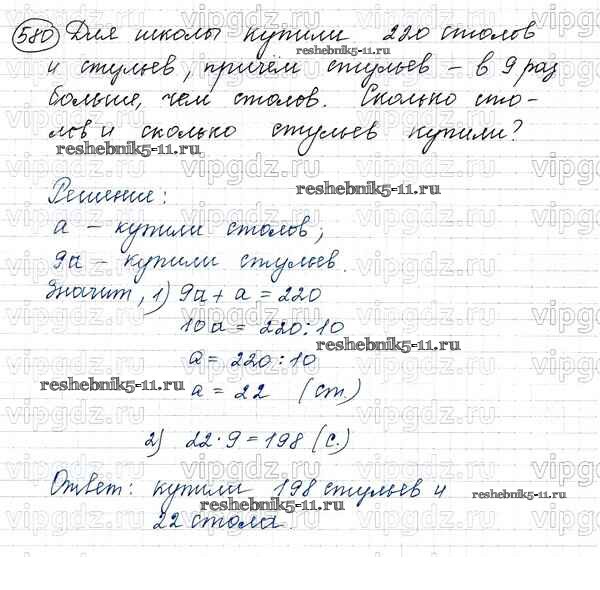 580 Для школы купили 220 столов
и стульев, причём стульев – в 9 раз
больше, чем столов. Сколько сто-
лов и сколько стульев купили?
Решение:
a – купили столов,
9a – купили стульев.
Значит, 1) 9a + a = 220
10a = 220:10
a = 220:10
a = 22 (ст.)
2) 22·9=198 (с.)
Ответ: купили 198 стульев и
22 стола.
reshebnik5-11.ru
reshebnik5-11.ru
reshebnik5-11.ru
reshebnik5-11.ru
reshebnik5-11.ru
reshebnik5-11.ru
reshebnik5-11.ru
vipgdz.ru